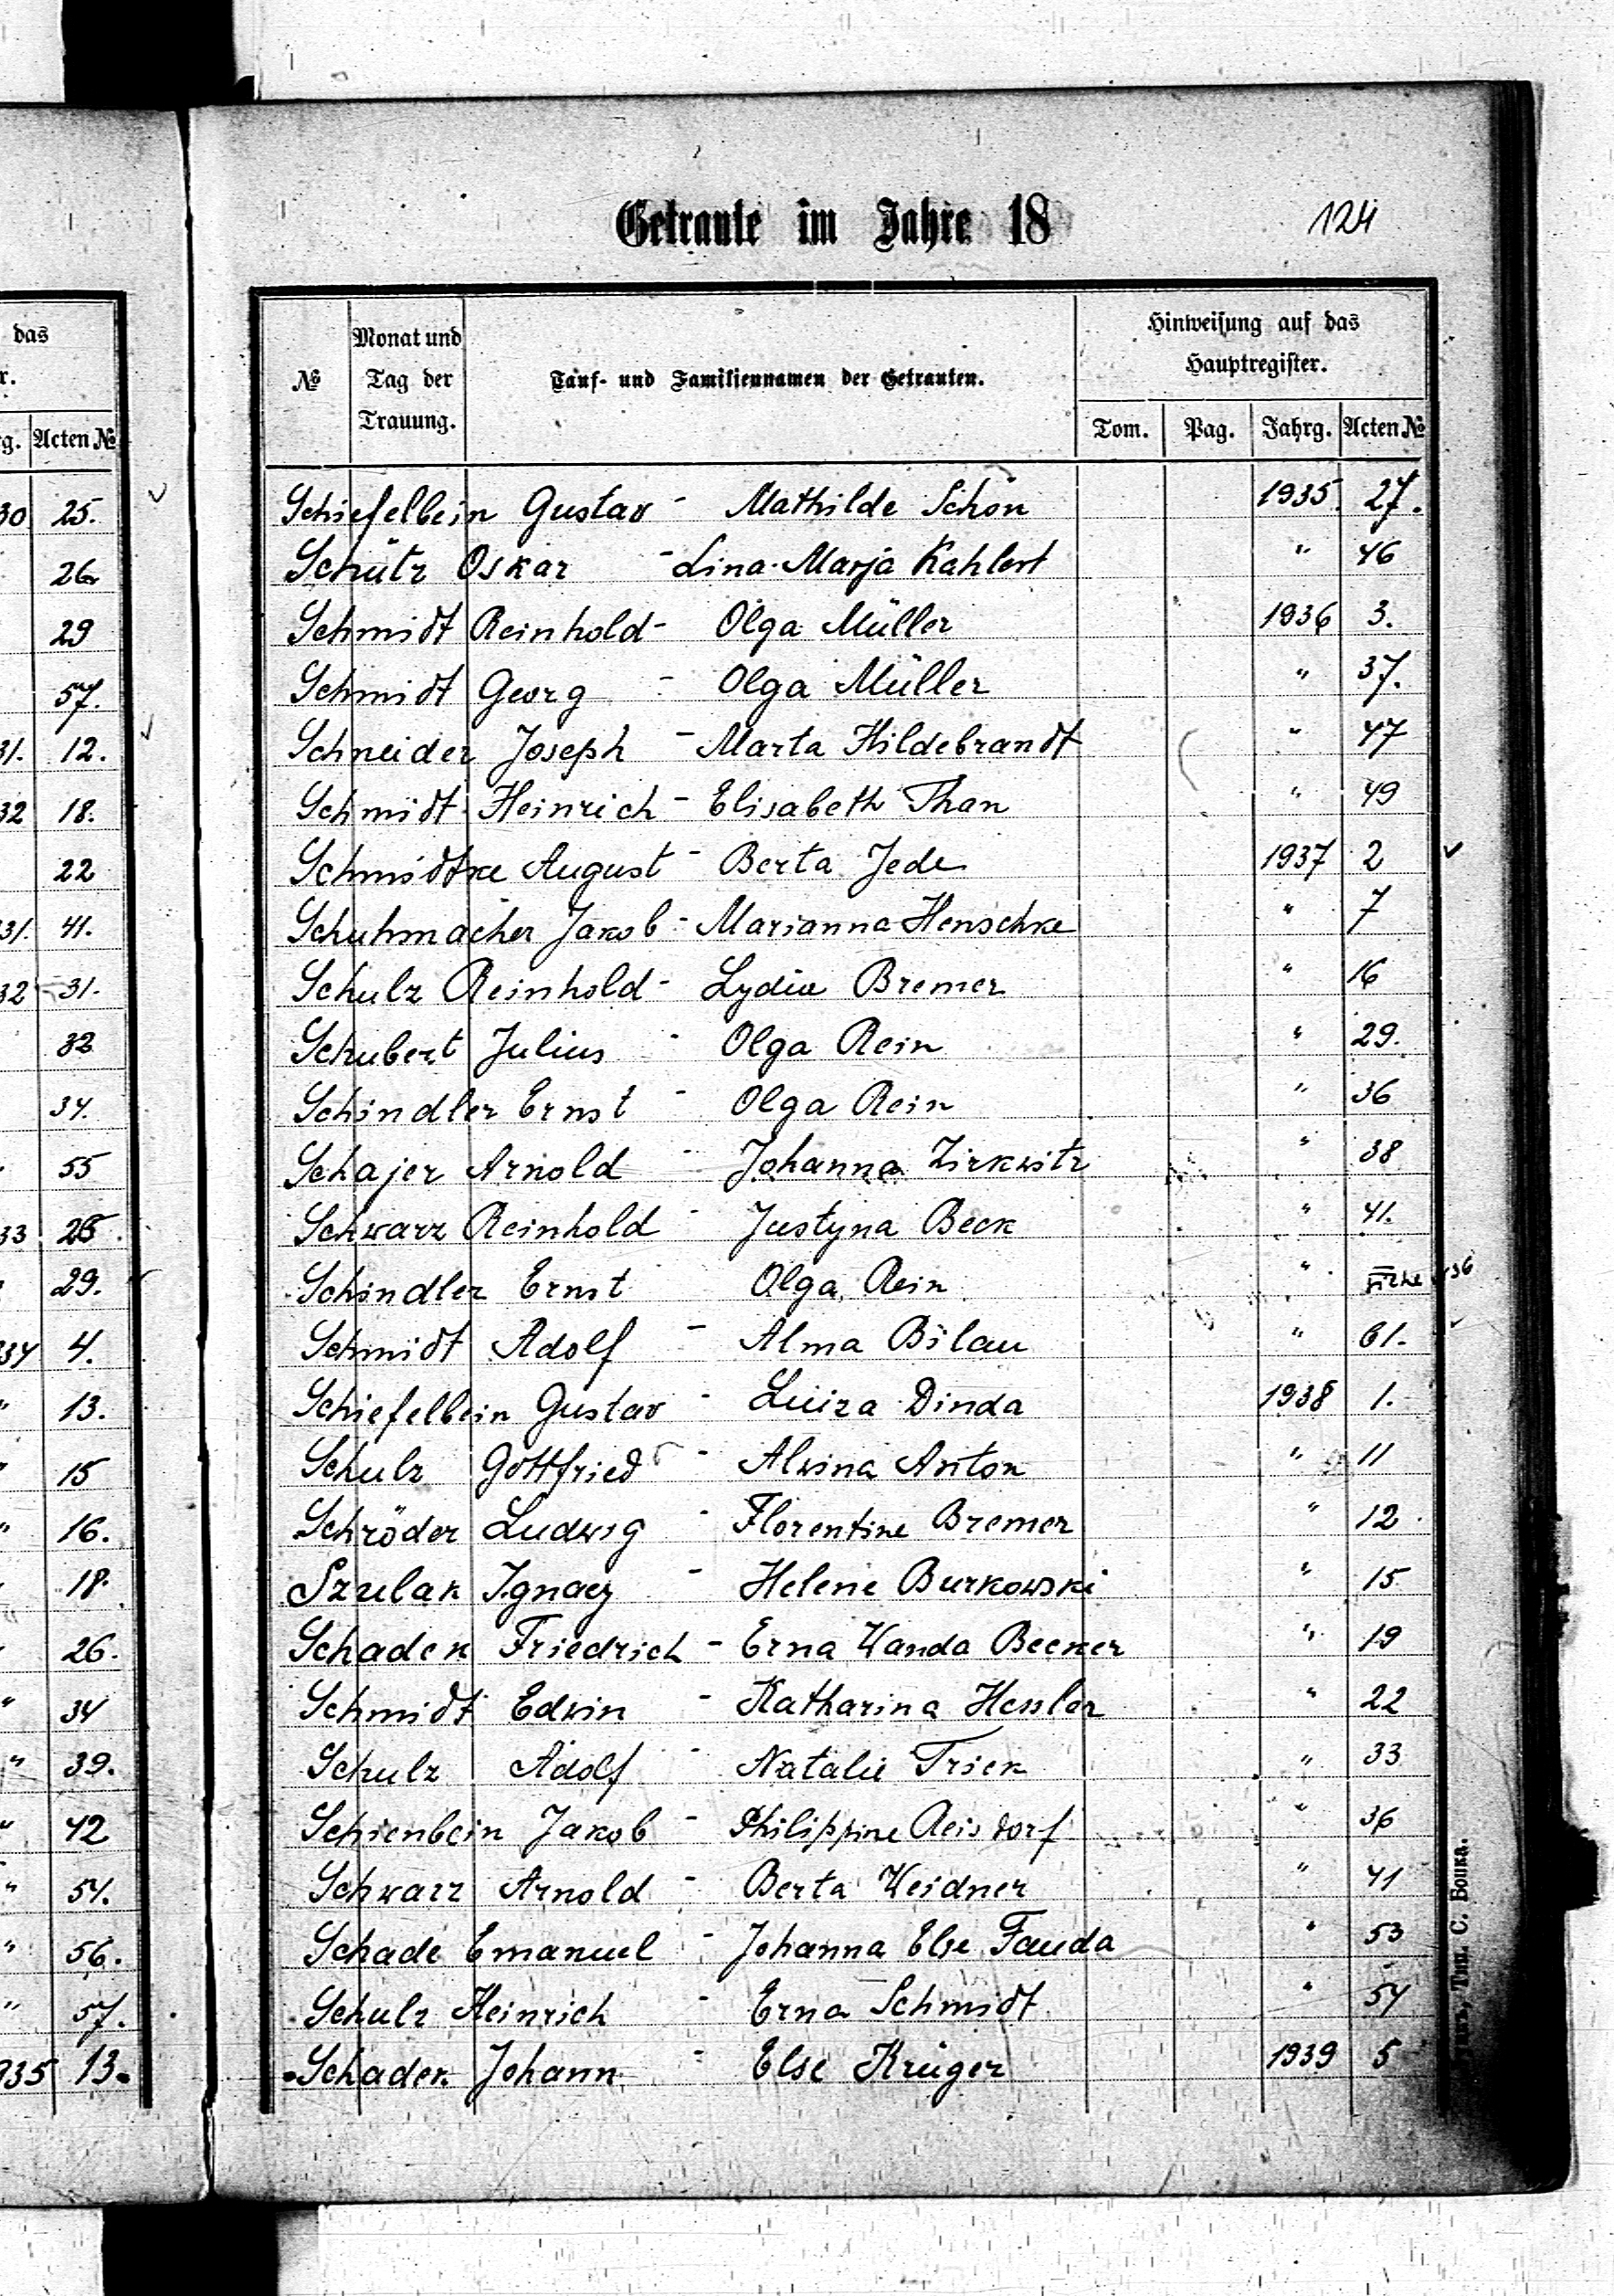 das
r.
rg. Acten №
30 25.
26
29
57.
31. 12.
32 18.
22
31. 41.
32 31.
32
34.
55
33 25.
29.
34 4.
" 13.
" 15
" 16.
18.
26.
" 34
" 39.
" 42
" 54.
" 56.
" 57.
935 13.
Getraute im Jahre 18
124
№ Monat und Tag der Trauung. Tauf- und Familiennamen der Getrauten. Hinweisung auf das Hauptregister.
Tom. Pag. Jahrg. Acten №
Schiefelbein Gustav - Mathilde Schön 1935. 27.
Schütz Oskar - Lina-Marja Kahlert " 46
Schmidt Reinhold - Olga Müller 1936 3.
Schmidt Georg - Olga Müller " 37.
Schneider Joseph - Marta Hildebrandt " 47
Schmidt Heinrich - Elisabeth Than " 49
Schmidtke August - Berta Jede 1937 2
Schuhmacher Jakob - Marianna Henschke " 7
Schulz Reinhold - Lydia Bremer " 16
Schubert Julius - Olga Rein " 29.
Schindler Ernst - Olga Rein " 36
Schajer Arnold - Johanna Zirkwitz " 38
Schwarz Reinhold - Justyna Beck " 41.
Schindler Ernst Olga Rein " siehe 36
Schmidt Adolf - Alma Bilau " 61.
Schiefelbein Gustav - Luiza Dinda 1938 1.
Schulz Gottfried - Alwina Anton " 11
Schröder Ludwig - Florentine Bremer " 12
Szulak Ignacy - Helene Burkowski " 15
Schadek Friedrich - Erna Wanda Becker " 19
Schmidt Edwin - Katharina Hessler " 22
Schulz Adolf - Natalie Friek " 33
Schienbein Jakob - Philippine Reisdorf " 36
Schwarz Arnold - Berta Weidner " 41
Schade Emanuel - Johanna Else Fauda " 53
Schulz Heinrich - Erna Schmidt " 54
Schadek Johann - Else Krüger 1939 5
Тип. С. Вощка.